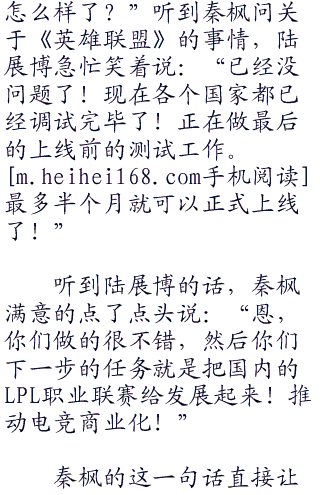 怎么样了？”听到秦枫问关
于《英雄联盟》的事情，陆
展博急忙笑着说：“已经没
问题了！现在各个国家都已
经调试完毕了！正在做最后
的上线前的测试工作。
[m.heihei168.com手机阅读]
最多半个月就可以正式上线
了！”
听到陆展博的话，秦枫
满意的点了点头说：“恩，
你们做的很不错，然后你们
下一步的任务就是把国内的
LPL职业联赛给发展起来！推
动电竞商业化！”
秦枫的这一句话直接让